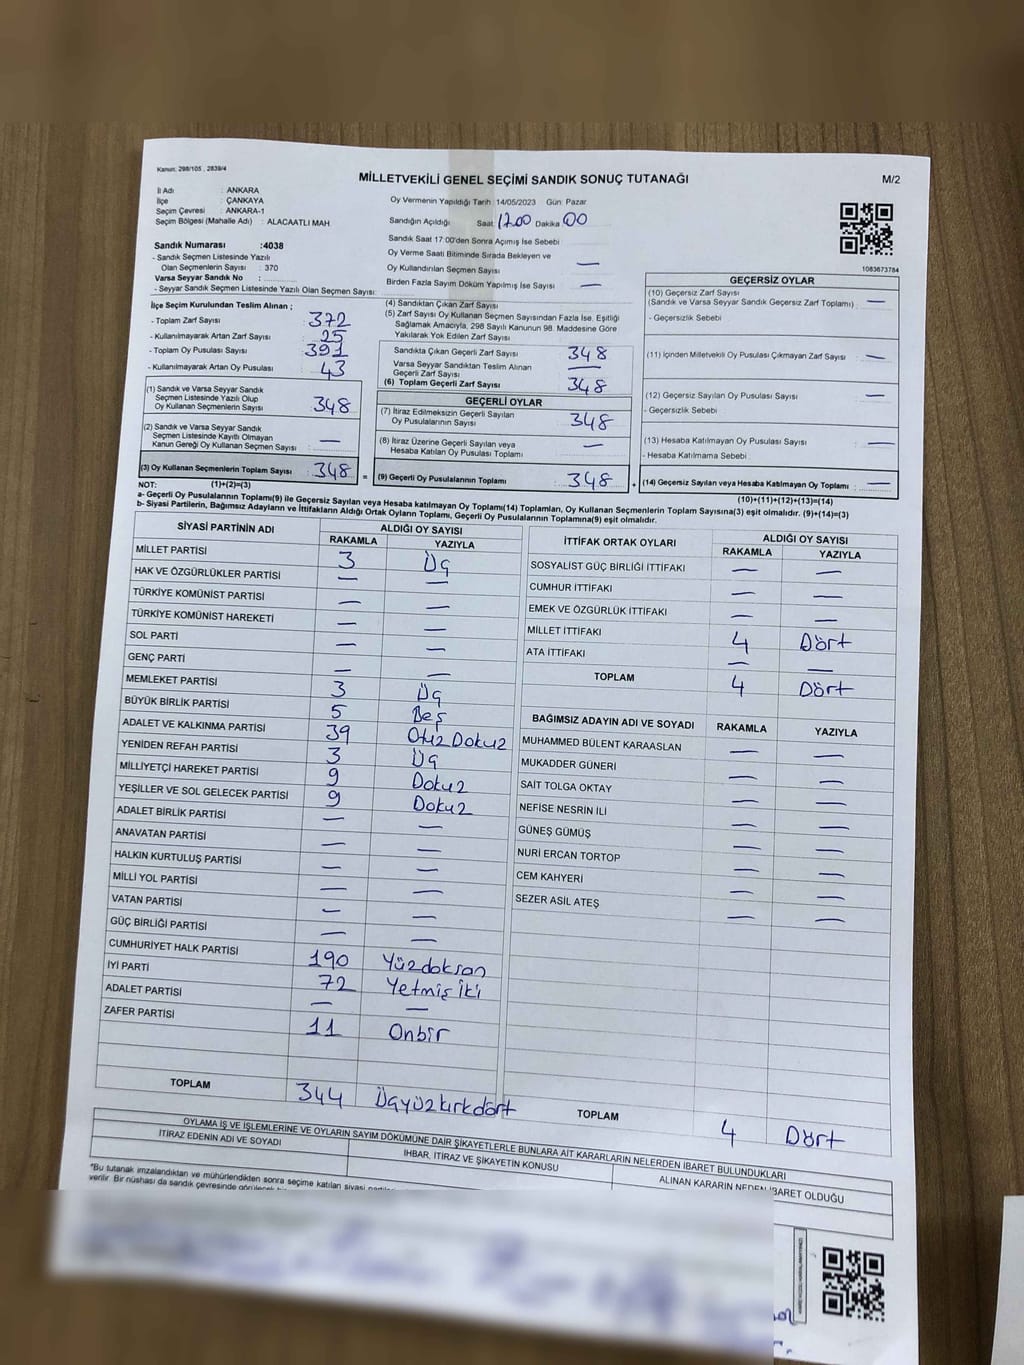 Kanun: 298/105 , 2839/4
MİLLETVEKİLİ GENEL SEÇİMİ SANDIK SONUÇ TUTANAĞI
M/2
İl Adı : ANKARA
İlçe : ÇANKAYA
Seçim Çevresi : ANKARA-1
Seçim Bölgesi (Mahalle Adı) : ALACAATLI MAH.
Oy Vermenin Yapıldığı Tarih : 14/05/2023 Gün: Pazar
Sandığın Açıldığı Saat: 17.00 Dakika: 00
Sandık Saat 17:00'den Sonra Açılmış İse Sebebi
Oy Verme Saati Bitiminde Sırada Bekleyen ve
Oy Kullandırılan Seçmen Sayısı —
Birden Fazla Sayım Döküm Yapılmış İse Sayısı : —
1083673784
Sandık Numarası :4038
- Sandık Seçmen Listesinde Yazılı
Olan Seçmenlerin Sayısı : 370
Varsa Seyyar Sandık No :
- Seyyar Sandık Seçmen Listesinde Yazılı Olan Seçmen Sayısı:
İlçe Seçim Kurulundan Teslim Alınan ;
- Toplam Zarf Sayısı 372
- Kullanılmayarak Artan Zarf Sayısı 25
- Toplam Oy Pusulası Sayısı 391
- Kullanılmayarak Artan Oy Pusulası 43
(1) Sandık ve Varsa Seyyar Sandık
Seçmen Listesinde Yazılı Olup
Oy Kullanan Seçmenlerin Sayısı 348
(2) Sandık ve Varsa Seyyar Sandık
Seçmen Listesinde Kayıtlı Olmayan
Kanun Gereği Oy Kullanan Seçmen Sayısı —
(3) Oy Kullanan Seçmenlerin Toplam Sayısı 348 =
(1)+(2)=(3)
(4) Sandıktan Çıkan Zarf Sayısı
(5) Zarf Sayısı Oy Kullanan Seçmen Sayısından Fazla İse, Eşitliği
Sağlamak Amacıyla, 298 Sayılı Kanunun 98. Maddesine Göre
Yakılarak Yok Edilen Zarf Sayısı
Sandıkta Çıkan Geçerli Zarf Sayısı 348
Varsa Seyyar Sandıktan Teslim Alınan
Geçerli Zarf Sayısı —
(6) Toplam Geçerli Zarf Sayısı 348
GEÇERLİ OYLAR
(7) İtiraz Edilmeksizin Geçerli Sayılan
Oy Pusulalarının Sayısı 348
(8) İtiraz Üzerine Geçerli Sayılan veya
Hesaba Katılan Oy Pusulası Toplamı —
(9) Geçerli Oy Pusulalarının Toplamı 348 +
GEÇERSİZ OYLAR
(10) Geçersiz Zarf Sayısı
(Sandık ve Varsa Seyyar Sandık Geçersiz Zarf Toplamı) : —
- Geçersizlik Sebebi
(11) İçinden Milletvekili Oy Pusulası Çıkmayan Zarf Sayısı : —
(12) Geçersiz Sayılan Oy Pusulası Sayısı : —
- Geçersizlik Sebebi
(13) Hesaba Katılmayan Oy Pusulası Sayısı : —
- Hesaba Katılmama Sebebi
(14) Geçersiz Sayılan veya Hesaba Katılmayan Oy Toplamı : —
(10)+(11)+(12)+(13)=(14)
NOT:
a- Geçerli Oy Pusulalarının Toplamı(9) ile Geçersiz Sayılan veya Hesaba katılmayan Oy Toplamı(14) Toplamları, Oy Kullanan Seçmenlerin Toplam Sayısına(3) eşit olmalıdır. (9)+(14)=(3)
b- Siyasi Partilerin, Bağımsız Adayların ve İttifakların Aldığı Ortak Oyların Toplamı, Geçerli Oy Pusulalarının Toplamına(9) eşit olmalıdır.
SİYASİ PARTİNİN ADI ALDIĞI OY SAYISI
RAKAMLA YAZIYLA
MİLLET PARTİSİ 3 Üç
HAK VE ÖZGÜRLÜKLER PARTİSİ — —
TÜRKİYE KOMÜNİST PARTİSİ — —
TÜRKİYE KOMÜNİST HAREKETİ — —
SOL PARTİ — —
GENÇ PARTİ — —
MEMLEKET PARTİSİ 3 Üç
BÜYÜK BİRLİK PARTİSİ 5 Beş
ADALET VE KALKINMA PARTİSİ 39 Otuz Dokuz
YENİDEN REFAH PARTİSİ 3 Üç
MİLLİYETÇİ HAREKET PARTİSİ 9 Dokuz
YEŞİLLER VE SOL GELECEK PARTİSİ 9 Dokuz
ADALET BİRLİK PARTİSİ — —
ANAVATAN PARTİSİ — —
HALKIN KURTULUŞ PARTİSİ — —
MİLLİ YOL PARTİSİ — —
VATAN PARTİSİ — —
GÜÇ BİRLİĞİ PARTİSİ — —
CUMHURİYET HALK PARTİSİ 190 Yüzdoksan
İYİ PARTİ 72 Yetmiş İki
ADALET PARTİSİ — —
ZAFER PARTİSİ 11 Onbir
TOPLAM 344 Üçyüzkırkdört
İTTİFAK ORTAK OYLARI ALDIĞI OY SAYISI
RAKAMLA YAZIYLA
SOSYALİST GÜÇ BİRLİĞİ İTTİFAKI — —
CUMHUR İTTİFAKI — —
EMEK VE ÖZGÜRLÜK İTTİFAKI — —
MİLLET İTTİFAKI 4 Dört
ATA İTTİFAKI — —
TOPLAM 4 Dört
BAĞIMSIZ ADAYIN ADI VE SOYADI RAKAMLA YAZIYLA
MUHAMMED BÜLENT KARAASLAN — —
MUKADDER GÜNERİ — —
SAİT TOLGA OKTAY — —
NEFİSE NESRİN İLİ — —
GÜNEŞ GÜMÜŞ — —
NURİ ERCAN TORTOP — —
CEM KAHYERİ — —
SEZER ASİL ATEŞ — —
TOPLAM 4 Dört
OYLAMA İŞ VE İŞLEMLERİNE VE OYLARIN SAYIM DÖKÜMÜNE DAİR ŞİKAYETLERLE BUNLARA AİT KARARLARIN NELERDEN İBARET BULUNDUKLARI
İTİRAZ EDENİN ADI VE SOYADI
İHBAR, İTİRAZ VE ŞİKAYETİN KONUSU
ALINAN KARARIN NEDEN İBARET OLDUĞU
"Bu tutanak imzalandıktan ve mühürlendikten sonra seçime katılan siyasi
verilir. Bir nüshası da sandık çevresinde